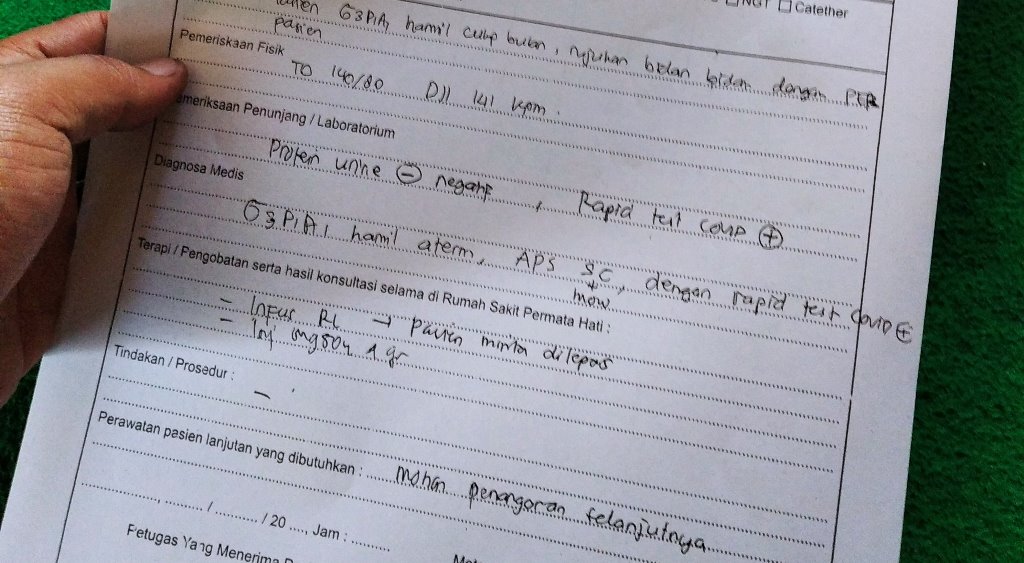 NGT ☐ Catether
G3P1A1 hamil cukup bulan, rujukan bidan dengan PER
Pasien
Pemeriskaan Fisik
TD 140/80 DJJ 141 kpm.
emeriksaan Penunjang / Laboratorium
Protein urine ⊖ negatif, Rapid test covid ⊕
Diagnosa Medis
G3P1A1 hamil aterm, APS SC, dengan rapid test covid ⊕
+
mow
Terapi / Pengobatan serta hasil konsultasi selama di Rumah Sakit Permata Hati :
- Infus RL → pasien minta dilepas
- Inj mgso4 1 gr
Tindakan / Prosedur :
-
Perawatan pasien lanjutan yang dibutuhkan : mohon penanganan selanjutnya
/ / 20 , Jam :
Petugas Yang Menerima